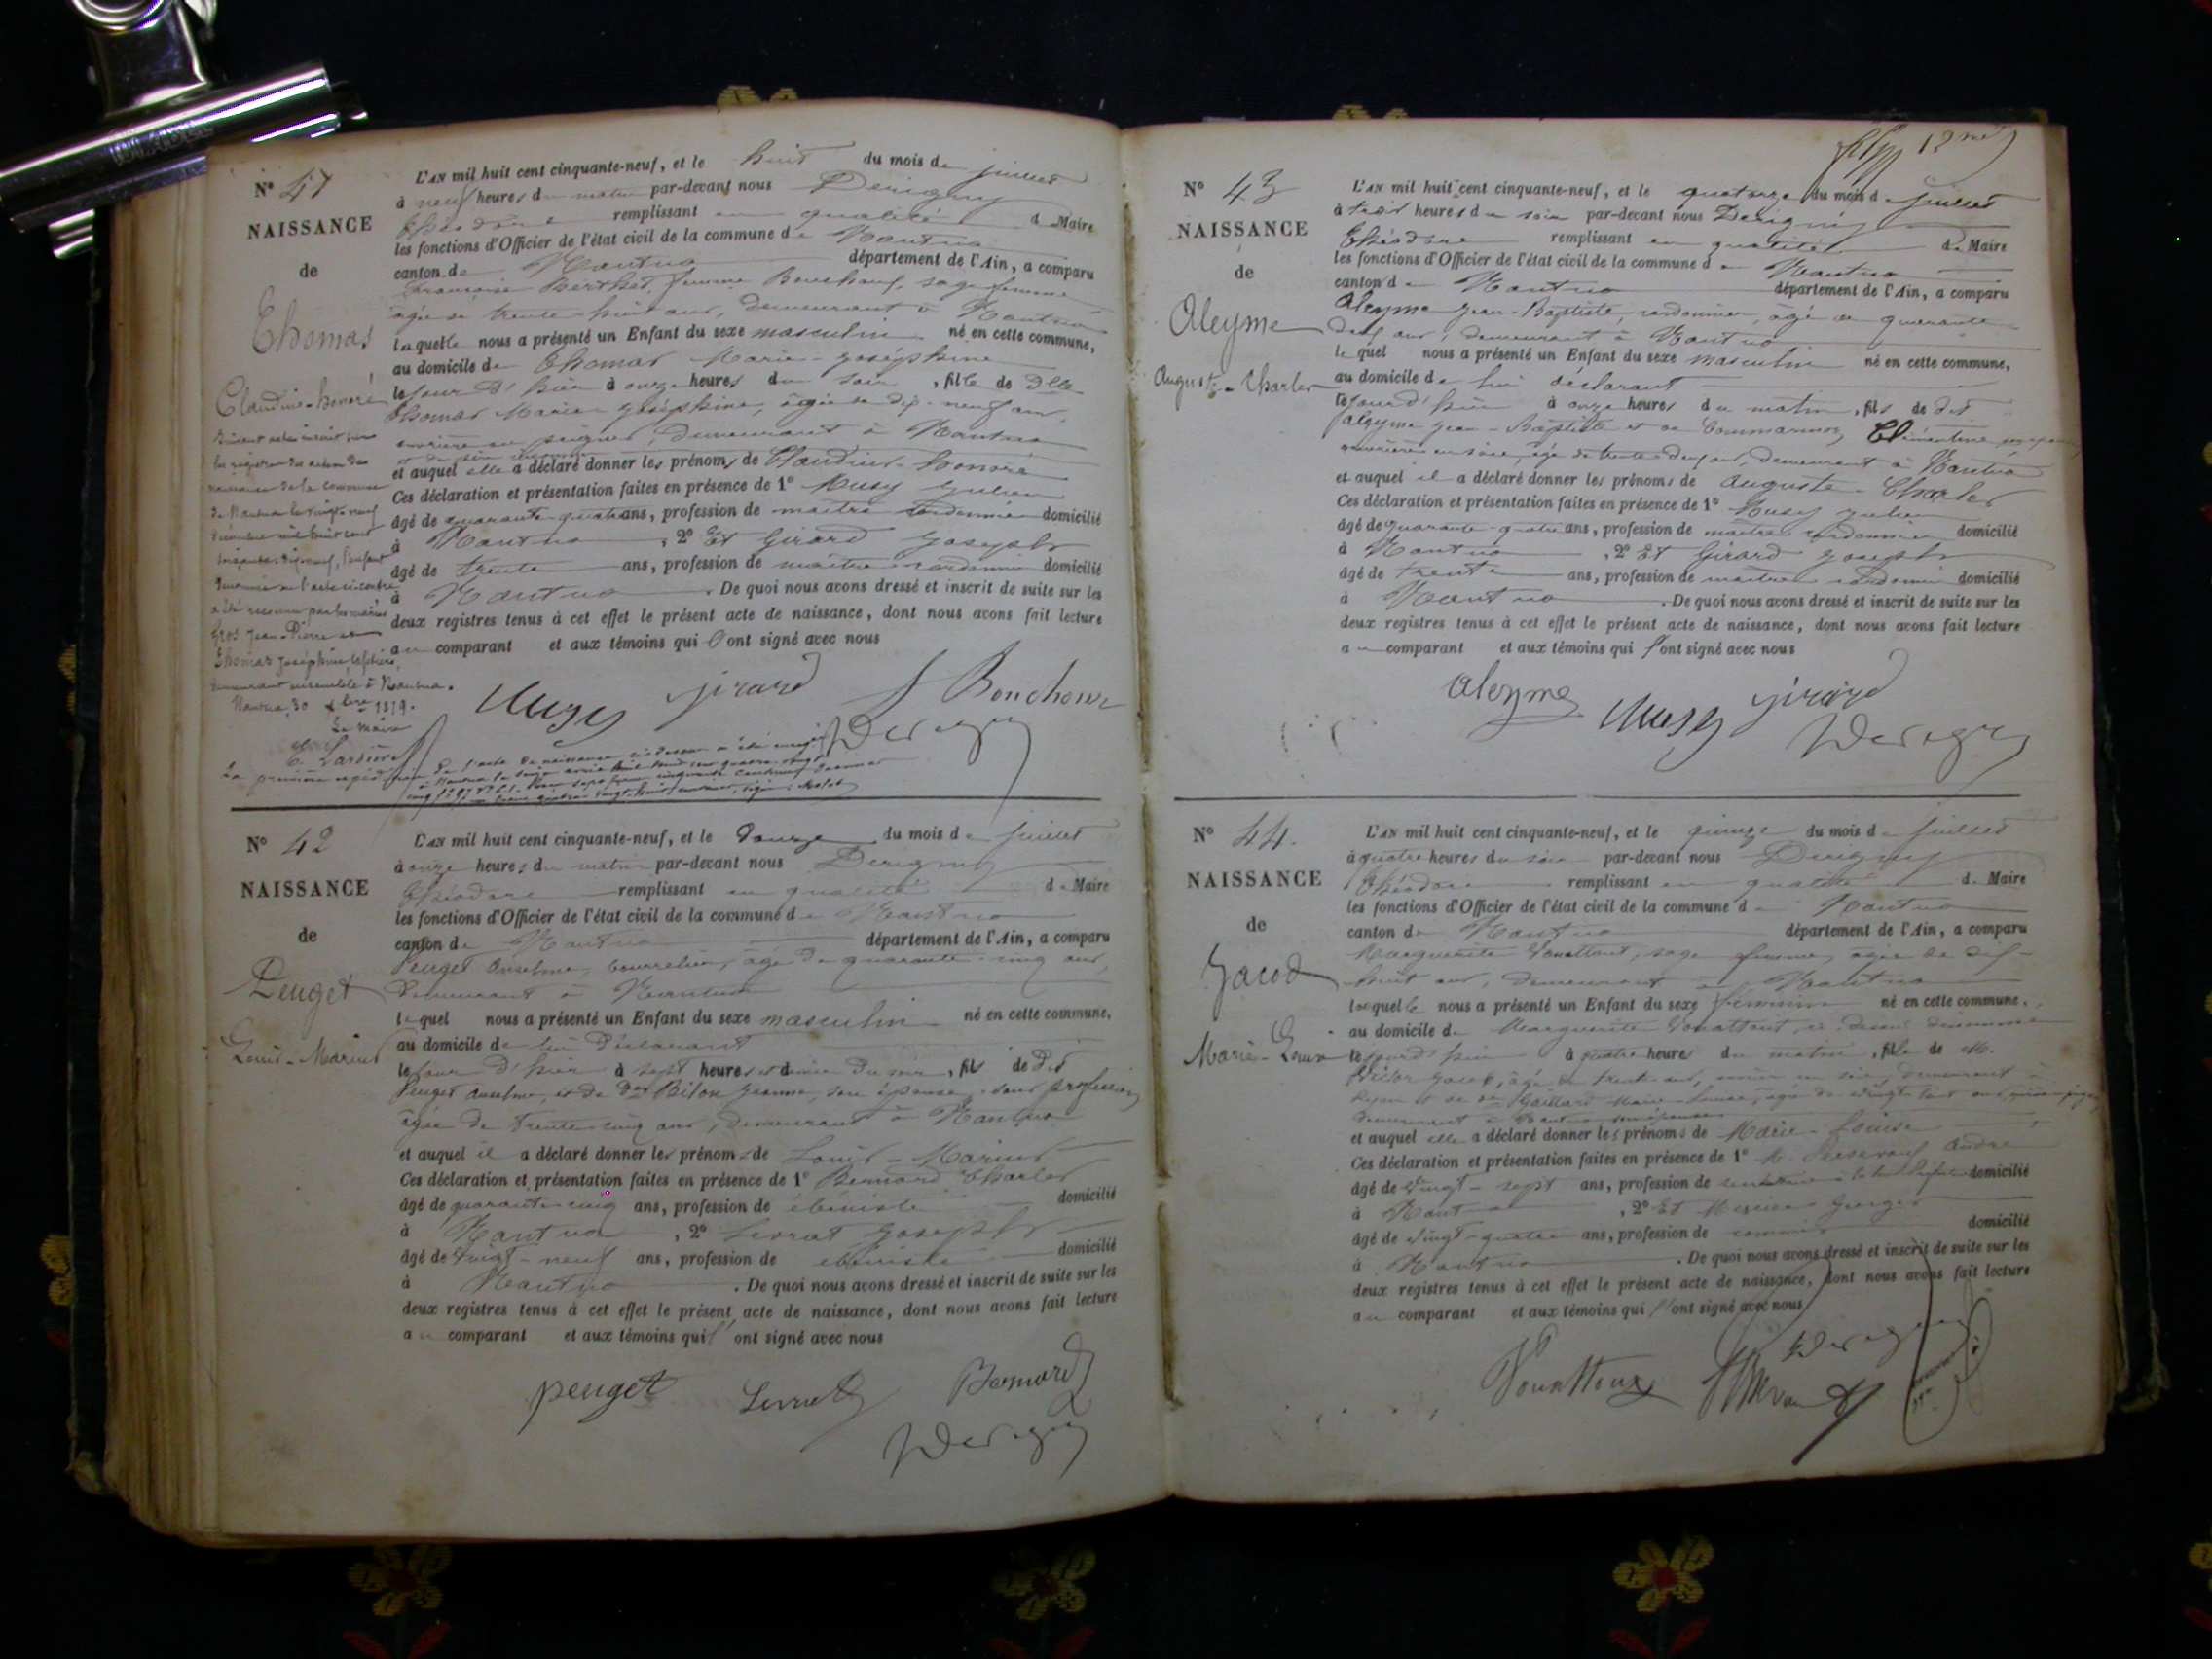 N° 41
NAISSANCE
de
Thomas
Claudius-honoré
L'AN mil huit cent cinquante-neuf, et le huit du mois de juillet
à neuf heures du matin par-devant nous Derigny
Théodore remplissant en qualité de Maire
les fonctions d'Officier de l'état civil de la commune de Nantua
canton de Nantua département de l'Ain, a comparu
Françoise Berthet, femme Bouchoux, sage femme
agée de trente-huit ans, demeurant à Nantua
laquelle nous a présenté un Enfant du sexe masculin né en cette commune,
au domicile de Thomas Marie-joséphine
le jour d'hier à onze heures du soir, fils de Dlle
Thomas Marie joséphine, âgée de dix-neuf ans,
ouvrière en peignes, demeurant à Nantua
et auquel elle a déclaré donner les prénoms de Claudius-honoré
Ces déclaration et présentation faites en présence de 1° Musy Julien
âgé de quarante-quatre ans, profession de maître cordonnier domicilié
à Nantua, 2° Et Girard joseph
âgé de trente ans, profession de maître cordonnier domicilié
à Nantua. De quoi nous avons dressé et inscrit de suite sur les
deux registres tenus à cet effet le présent acte de naissance, dont nous avons fait lecture
au comparant et aux témoins qui l'ont signé avec nous
les registres des actes de
naissance de la commune
de Nantua le vingt-neuf
a été reconnu par les mariés
Gros Jean-Pierre et
Thomas Joséphine
demeurant ensemble à Nantua.
Nantua, 30 1879.
Le Maire
Musy Girard f Bouchoux
Derigny
La première expédition de l'acte de naissance ci-dessus a été
N° 42
NAISSANCE
de
Peuget
Louis-Marius
L'AN mil huit cent cinquante-neuf, et le douze du mois de juillet
à onze heures du matin par-devant nous Derigny
Théodore remplissant en qualité de Maire
les fonctions d'Officier de l'état civil de la commune de Nantua
canton de Nantua département de l'Ain, a comparu
Peuget Anselme, bourrelier, âgé de quarante-cinq ans,
demeurant à Nantua
lequel nous a présenté un Enfant du sexe masculin né en cette commune,
au domicile de lui déclarant
le jour d'hier à sept heures et demie du soir, fils de dit
Peuget Anselme, et de dme Bilon Jeanne, son épouse, sans profession
âgée de trente-cinq ans, demeurant à Nantua
et auquel il a déclaré donner les prénoms de Louis-Marius
Ces déclaration et présentation faites en présence de 1° Bernard Charles
âgé de quarante-cinq ans, profession de ébéniste domicilié
à Nantua, 2° Levrat Joseph
âgé de vingt-neuf ans, profession de ébéniste domicilié
à Nantua. De quoi nous avons dressé et inscrit de suite sur les
deux registres tenus à cet effet le présent acte de naissance, dont nous avons fait lecture
au comparant et aux témoins qui l'ont signé avec nous
peuget Levrat Bernard
Derigny
N° 43
NAISSANCE
de
Aleyme
Auguste-Charles
L'AN mil huit cent cinquante-neuf, et le quatorze du mois de juillet
à trois heures du soir par-devant nous Derigny
Théodore remplissant en qualité de Maire
les fonctions d'Officier de l'état civil de la commune de Nantua
canton de Nantua département de l'Ain, a comparu
Aleyme Jean-Baptiste, cordonnier, âgé de quarante-
deux ans, demeurant à Nantua
lequel nous a présenté un Enfant du sexe masculin né en cette commune,
au domicile de lui déclarant
le jour d'hier à onze heures du matin, fils de dit
Aleyme Jean-Baptiste et de Clémentine son épouse
ouvrière en soie, âgée de trente-deux ans, demeurant à Nantua
et auquel il a déclaré donner les prénoms de Auguste-Charles
Ces déclaration et présentation faites en présence de 1° Musy Julien
âgé de quarante-quatre ans, profession de maître cordonnier domicilié
à Nantua, 2° Et Girard joseph
âgé de trente ans, profession de maître cordonnier domicilié
à Nantua. De quoi nous avons dressé et inscrit de suite sur les
deux registres tenus à cet effet le présent acte de naissance, dont nous avons fait lecture
au comparant et aux témoins qui l'ont signé avec nous
Aleyme Musy Girard
Derigny
N° 44.
NAISSANCE
de
Jacod
Marie-Louise
L'AN mil huit cent cinquante-neuf, et le quinze du mois de juillet
à quatre heures du soir par-devant nous Derigny
Théodore remplissant en qualité de Maire
les fonctions d'Officier de l'état civil de la commune de Nantua
canton de Nantua département de l'Ain, a comparu
Marguerite sage femme, agée de
huit ans, demeurant à Nantua
laquelle nous a présenté un Enfant du sexe féminin né en cette commune,
au domicile de Marguerite ci-dessus dénommée
le jour d'hier à quatre heures du matin, fille de M.
Victor Jacod, âgé de trente ans, demeurant à
Lyon et de Gaillard Marie-Louise, agée de vingt-
demeurant à son épouse
et auquel elle a déclaré donner les prénoms de Marie-Louise
Ces déclaration et présentation faites en présence de 1° André
âgé de vingt-sept ans, profession de domicilié
à Nantua, 2° Et Mercier Georges
âgé de vingt-quatre ans, profession de commis domicilié
à Nantua. De quoi nous avons dressé et inscrit de suite sur les
deux registres tenus à cet effet le présent acte de naissance, dont nous avons fait lecture
au comparant et aux témoins qui l'ont signé avec nous
Derigny